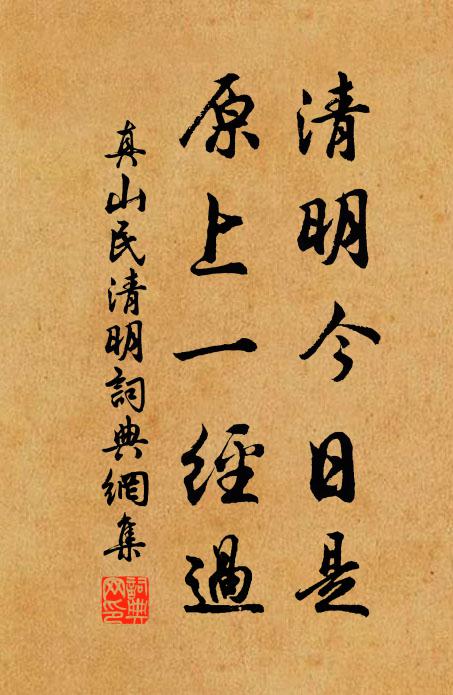 清明今日是
原上一經過
真山民清明詞典網集
詞典
网印